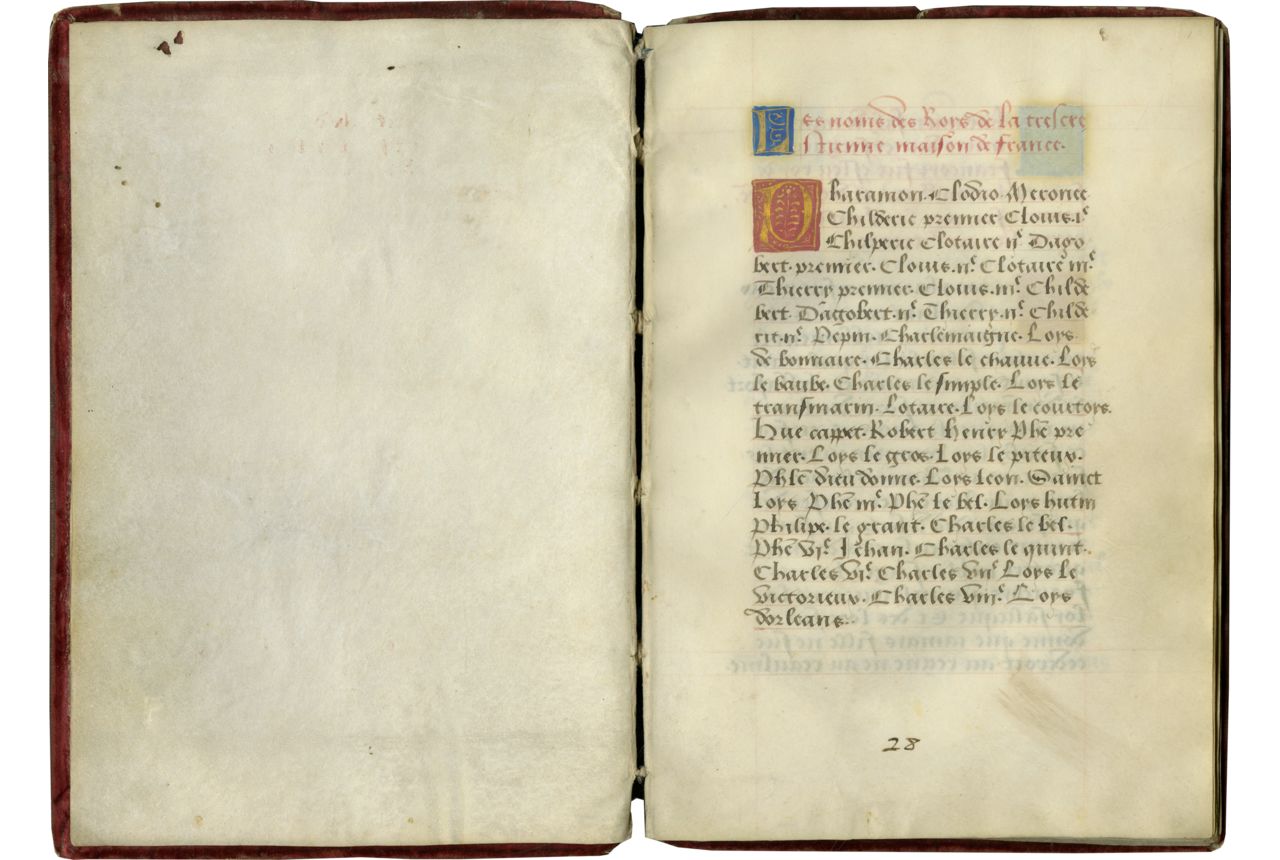 Les noms des Roys de la trescre
stienne maison de france.
Pharamon. Clodio. Meronee
Childeric premier Clouis. iͬ
Chilperic Clotaire iiͬ Dago
bert. premier. Clouis. iiͬ. Clotaire iiiͬ.
Thierry premier. Clouis. iiiͬ. Childe
bert. Dagobert. iiͬ. Thierry. iiͬ. Childe
ric. iiͬ. Pepin. Charlemaigne. Loys
de bonnaire. Charles le chauue. Loys
le baube. Charles le simple. Loys le
transmarin. Lotaire. Loys le courtoys.
Hue cappet. Robert Henry Phẽ pre
mier. Loys le gros. Loys le piteux.
Phlẽ dieu donne. Loys leon. Sainct
Loys Phẽ iiiͬ. Phẽ le bel. Loys hutin
Philipe. le grant. Charles le bel.
Phẽ viͬ. Jehan. Charles le quint.
Charles viͬ. Charles viiͬ. Loys le
victorieux. Charles viiiͬ. Loys
dorleans.
28